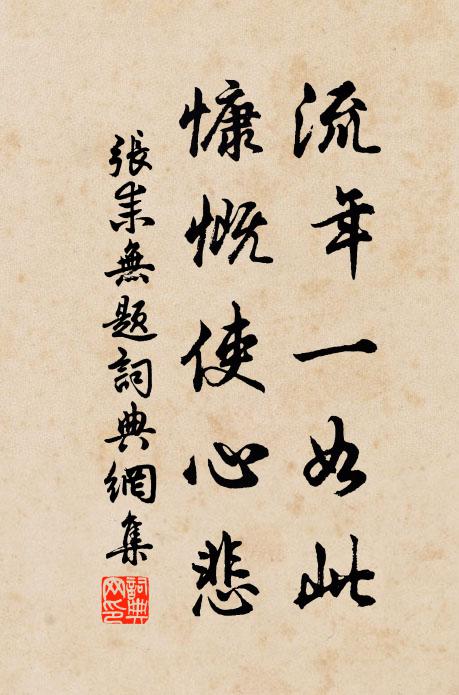 流年一如此
慷慨使心悲
張耒無題詞典網集
詞典網印